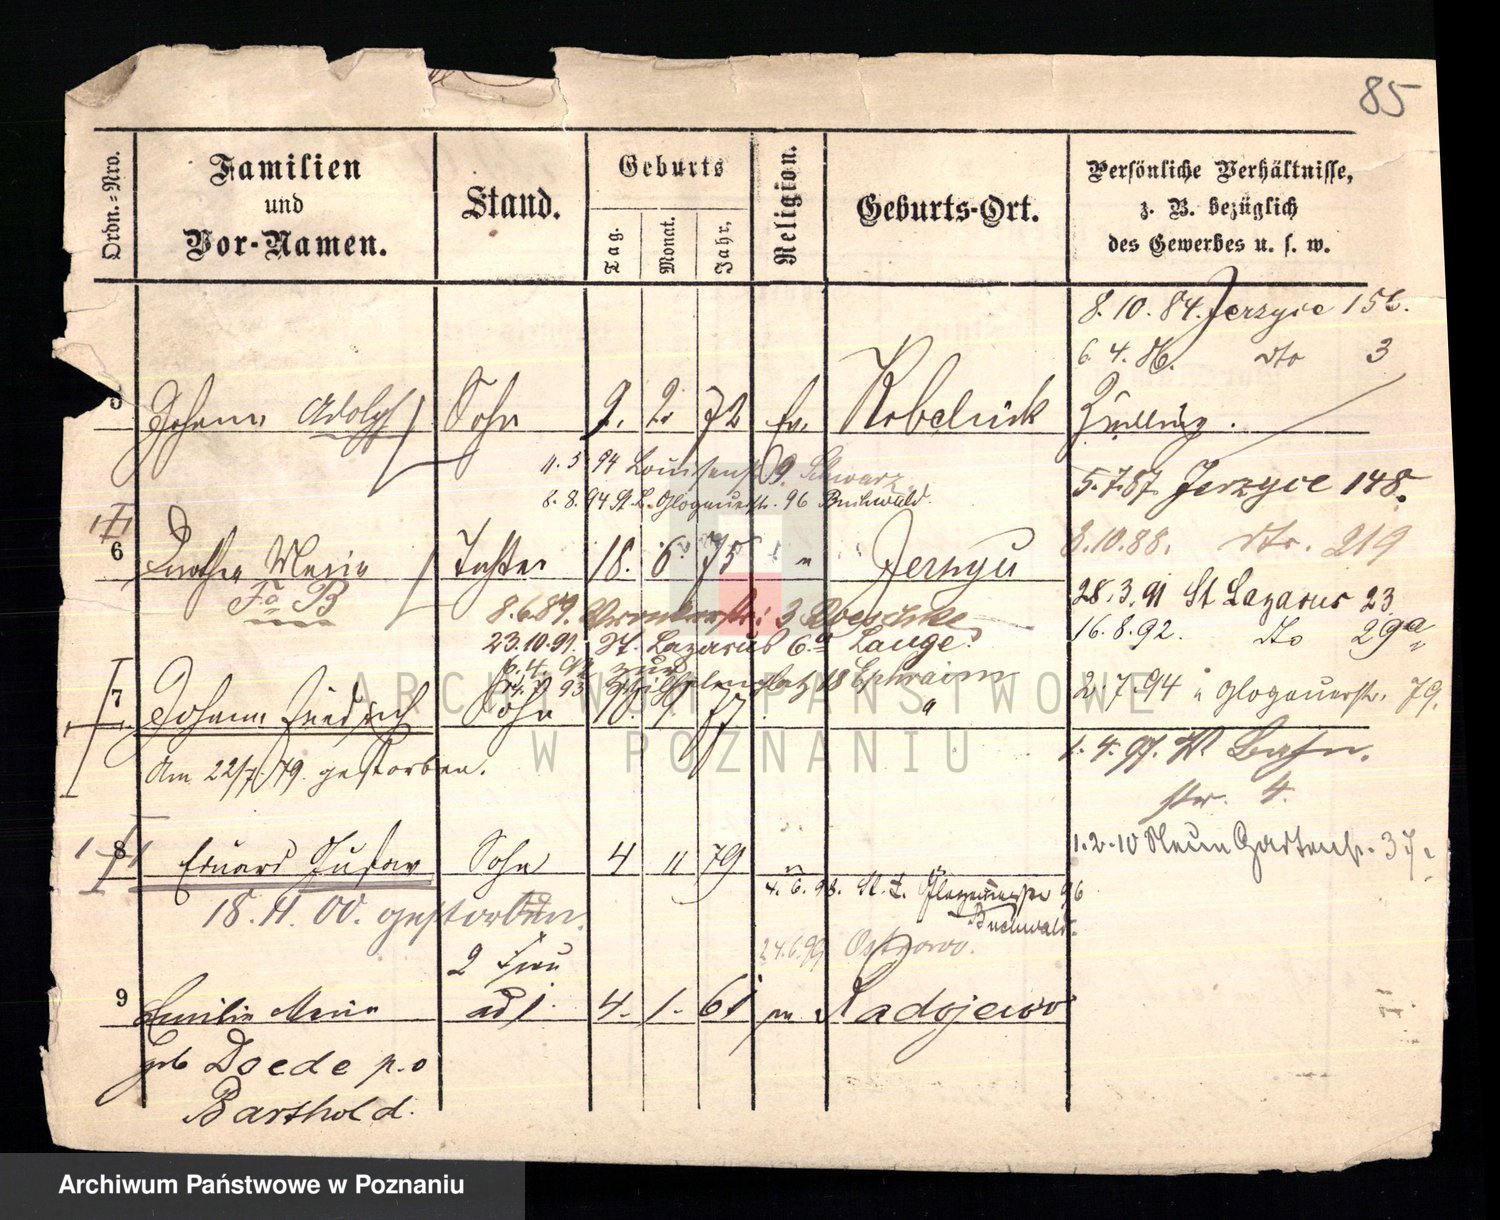 85
Ordn.-Nro.
Familien
und
Vor-Namen.
Stand.
Geburts
Tag.
Monat.
Jahr,
Religion.
Geburts-Ort.
Persönliche Verhältnisse,
z. B. bezüglich
des Gewerbes u. s. w.
8.10.84. Jerzyce 156.
6. 4. dto 3
5 Johann Adolph Sohn 9. 2. 72 ev. Kobelnick Zwilling.
11. 3 94 Louisenstr. 9. Schwarz
8. 8. 94 St. L. Glogauerstr. 96 Buchwald.
5.7.87 Jerzyce 148.
3.10.88. dto. 219
6 Marie Tochter 18. 6. 75 " Jerzyce
28.3.91 St Lazarus 23.
8.6.89. 3
16.8.92. dto 29a
23.10.91. St. Lazarus 6a Lange.
93 18 Ephraim
2.7.94 " Glogauerstr. 79.
7 Johann Friedrich Sohn 77 "
Am 22/7. 79. gestorben.
1. 4. 97. Bahn-
str. 4.
1.2.10 Neue Gartenstr. 37.
8 Eduard Gustav Sohn 4 11 79
4. 6. 98. St. L. 96
Buchwald.
18. 11. 00. gestorben.
Ostrowo.
2 Frau
9 Emilie Marie ad 1. 4. 1. 61 Radojewo
geb Doede p.o
Barthold.
ARCHIWUM PAŃSTWOWE
W POZNANIU
Archiwum Państwowe w Poznaniu